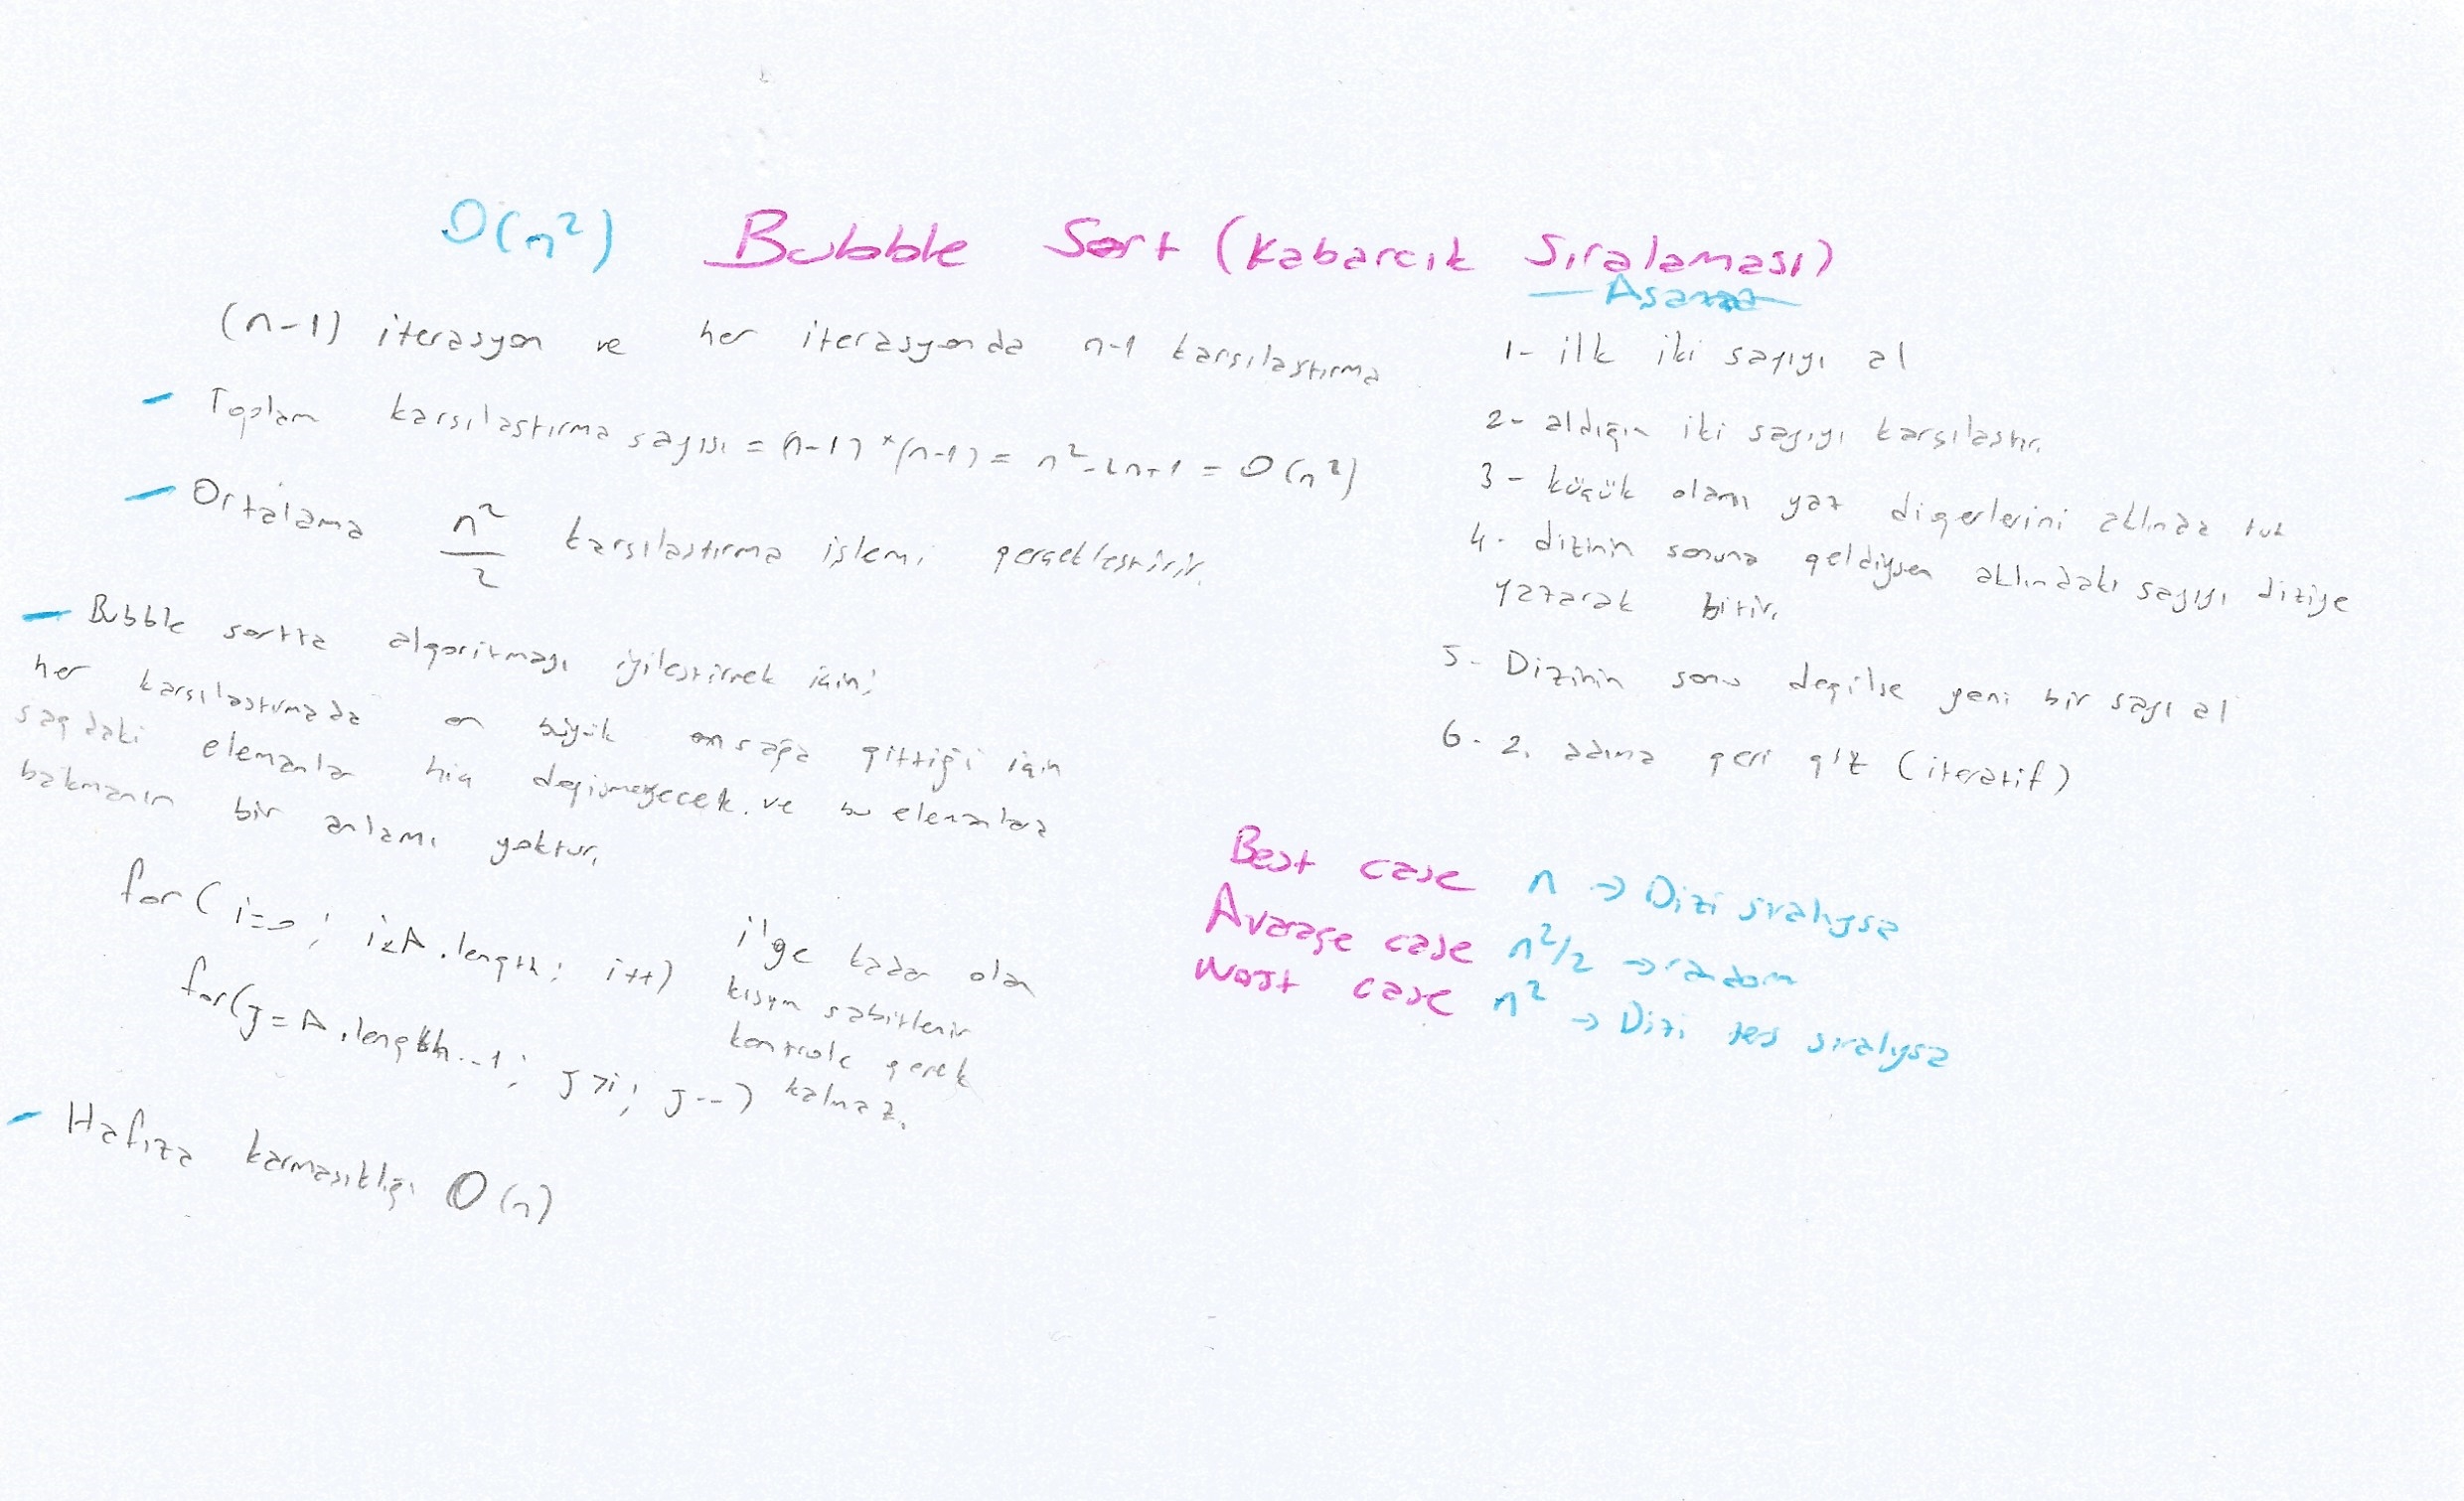 O(n²) Bubble Sort (Kabarcık Sıralaması)
(n-1) iterasyon ve her iterasyonda n-1 karsılastırma
- Toplam karsılaştırma sayısı = (n-1) * (n-1) = n²-2n+1 = O(n²)
- Ortalama n²/2 karsılastırma işlemi gerçekleştirir.
- Bubble sortta algoritmayı iyileştirmek için;
her karsılastırmada en büyük en sağa gittiği için
sagdaki elemanlar hiç degismeyecek. ve bu elemanlara
bakmanın bir anlamı yoktur.
for( i=0 ; i<A.length; i++)
for(j=A.length-1; j>i; j--)
i'ye kadar olan
kısım sabitlenir
kontrole gerek
kalmaz.
- Hafıza karmasıklıgı O(n)
1- ilk iki sayıyı al
2- aldıgın iki sayıyı karşılastır.
3- küçük olanı yaz digerlerini aklında tut
4- dizinin sonuna geldiysen aklındaki sayıyı diziye
yazarak bitir.
5- Dizinin sonu degilse yeni bir sayı al
6- 2. adıma geri git (iteratif)
Best case n → Dizi sıralıysa
Avarage case n²/2 → random
Worst case n² → Dizi ters sıralıysa